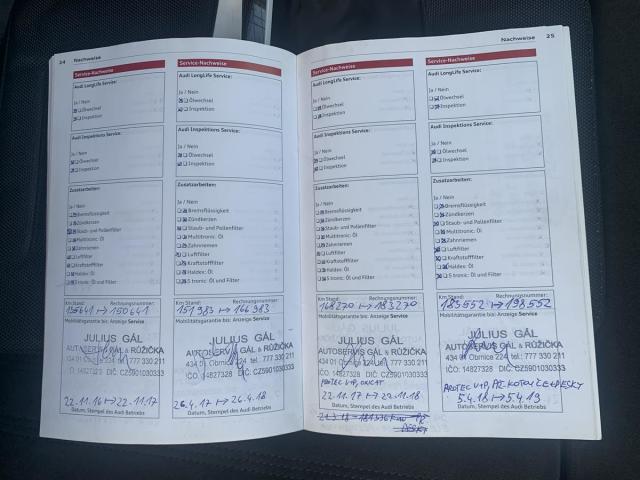 24 Nachweise
Service-Nachweise
Audi LongLife Service:
Ja / Nein
Ölwechsel
Inspektion
Audi Inspektions Service:
Ja / Nein
Ölwechsel
Inspektion
Zusatzarbeiten:
Ja / Nein
Bremsflüssigkeit
Zündkerzen
Staub- und Pollenfilter
Multitronic: Öl
Zahnriemen
Luftfilter
Kraftstofffilter
Haldex: Öl
S tronic: Öl und Filter
Km Stand: Rechnungsnummer:
135641 ↦ 150641
Mobilitätsgarantie bis: Anzeige Service
JULIUS GÁL
AUTOSERVIS GÁL & RŮŽIČKA
434 01 Čtornice 224 tel.: 777 330 211
IČO: 14827328 DIČ: CZ5901030333
22.11.16 ↦ 22.11.17
Datum, Stempel des Audi Betriebs
Service-Nachweise
Audi LongLife Service:
Ja / Nein
Ölwechsel
Inspektion
Audi Inspektions Service:
Ja / Nein
Ölwechsel
Inspektion
Zusatzarbeiten:
Ja / Nein
Bremsflüssigkeit
Zündkerzen
Staub- und Pollenfilter
Multitronic: Öl
Zahnriemen
Luftfilter
Kraftstofffilter
Haldex: Öl
S tronic: Öl und Filter
Km Stand: Rechnungsnummer:
151983 ↦ 166983
Mobilitätsgarantie bis: Anzeige Service
JULIUS GÁL
AUTOSERVIS GÁL & RŮŽIČKA
434 01 224 tel.: 777 330 211
IČO: 14827328 DIČ: CZ5901030333
26.4.17 ↦ 26.4.18
Datum, Stempel des Audi Betriebs
Nachweise 25
Service-Nachweise
Audi LongLife Service:
Ja / Nein
Ölwechsel
Inspektion
Audi Inspektions Service:
Ja / Nein
Ölwechsel
Inspektion
Zusatzarbeiten:
Ja / Nein
Bremsflüssigkeit
Zündkerzen
Staub- und Pollenfilter
Multitronic: Öl
Zahnriemen
Luftfilter
Kraftstofffilter
Haldex: Öl
S tronic: Öl und Filter
Km Stand: Rechnungsnummer:
168270 ↦ 183270
Mobilitätsgarantie bis: Anzeige Service
JULIUS GÁL
AUTOSERVIS GÁL & RŮŽIČKA
434 01 224 tel.: 777 330 211
IČO: 14827328 DIČ: CZ5901030333
22.11.17 ↦ 22.11.18
Datum, Stempel des Audi Betriebs
Service-Nachweise
Audi LongLife Service:
Ja / Nein
Ölwechsel
Inspektion
Audi Inspektions Service:
Ja / Nein
Ölwechsel
Inspektion
Zusatzarbeiten:
Ja / Nein
Bremsflüssigkeit
Zündkerzen
Staub- und Pollenfilter
Multitronic: Öl
Zahnriemen
Luftfilter
Kraftstofffilter
Haldex: Öl
S tronic: Öl und Filter
Km Stand: Rechnungsnummer:
183552 ↦ 198552
Mobilitätsgarantie bis: Anzeige Service
JULIUS GÁL
AUTOSERVIS GÁL & RŮŽIČKA
434 01 224 tel.: 777 330 211
IČO: 14827328 DIČ: CZ5901030333
5.4.18 ↦ 5.4.19
Datum, Stempel des Audi Betriebs